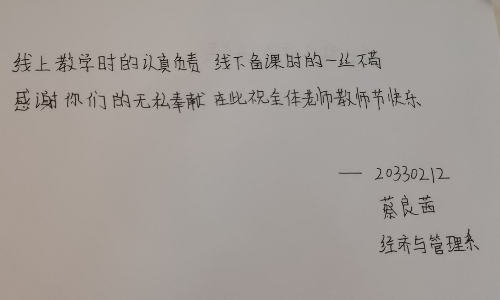 线上教学时的认真负责 线下备课时的一丝不苟
感谢你们的无私奉献 在此祝全体老师教师节快乐
— 20330212
蔡良茜
经济与管理系